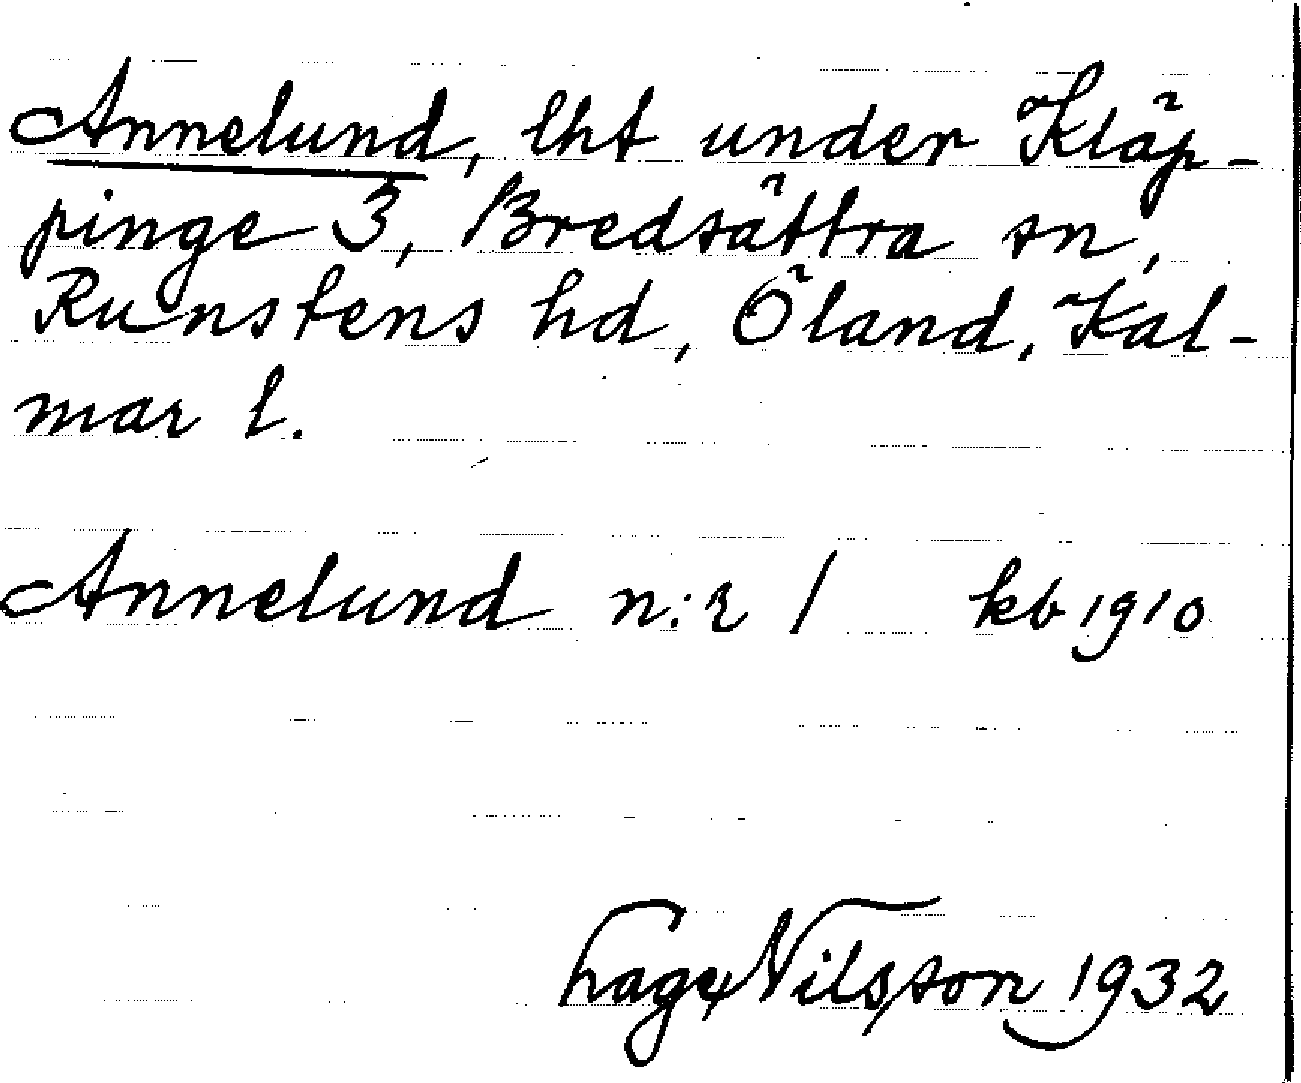 Annelund, lht under Kläp-
pinge 3, Bredsättra sn,
Runstens hd, Öland, Kal-
mar l.
Annelund n:r 1 kb 1910
Nilsson 1932